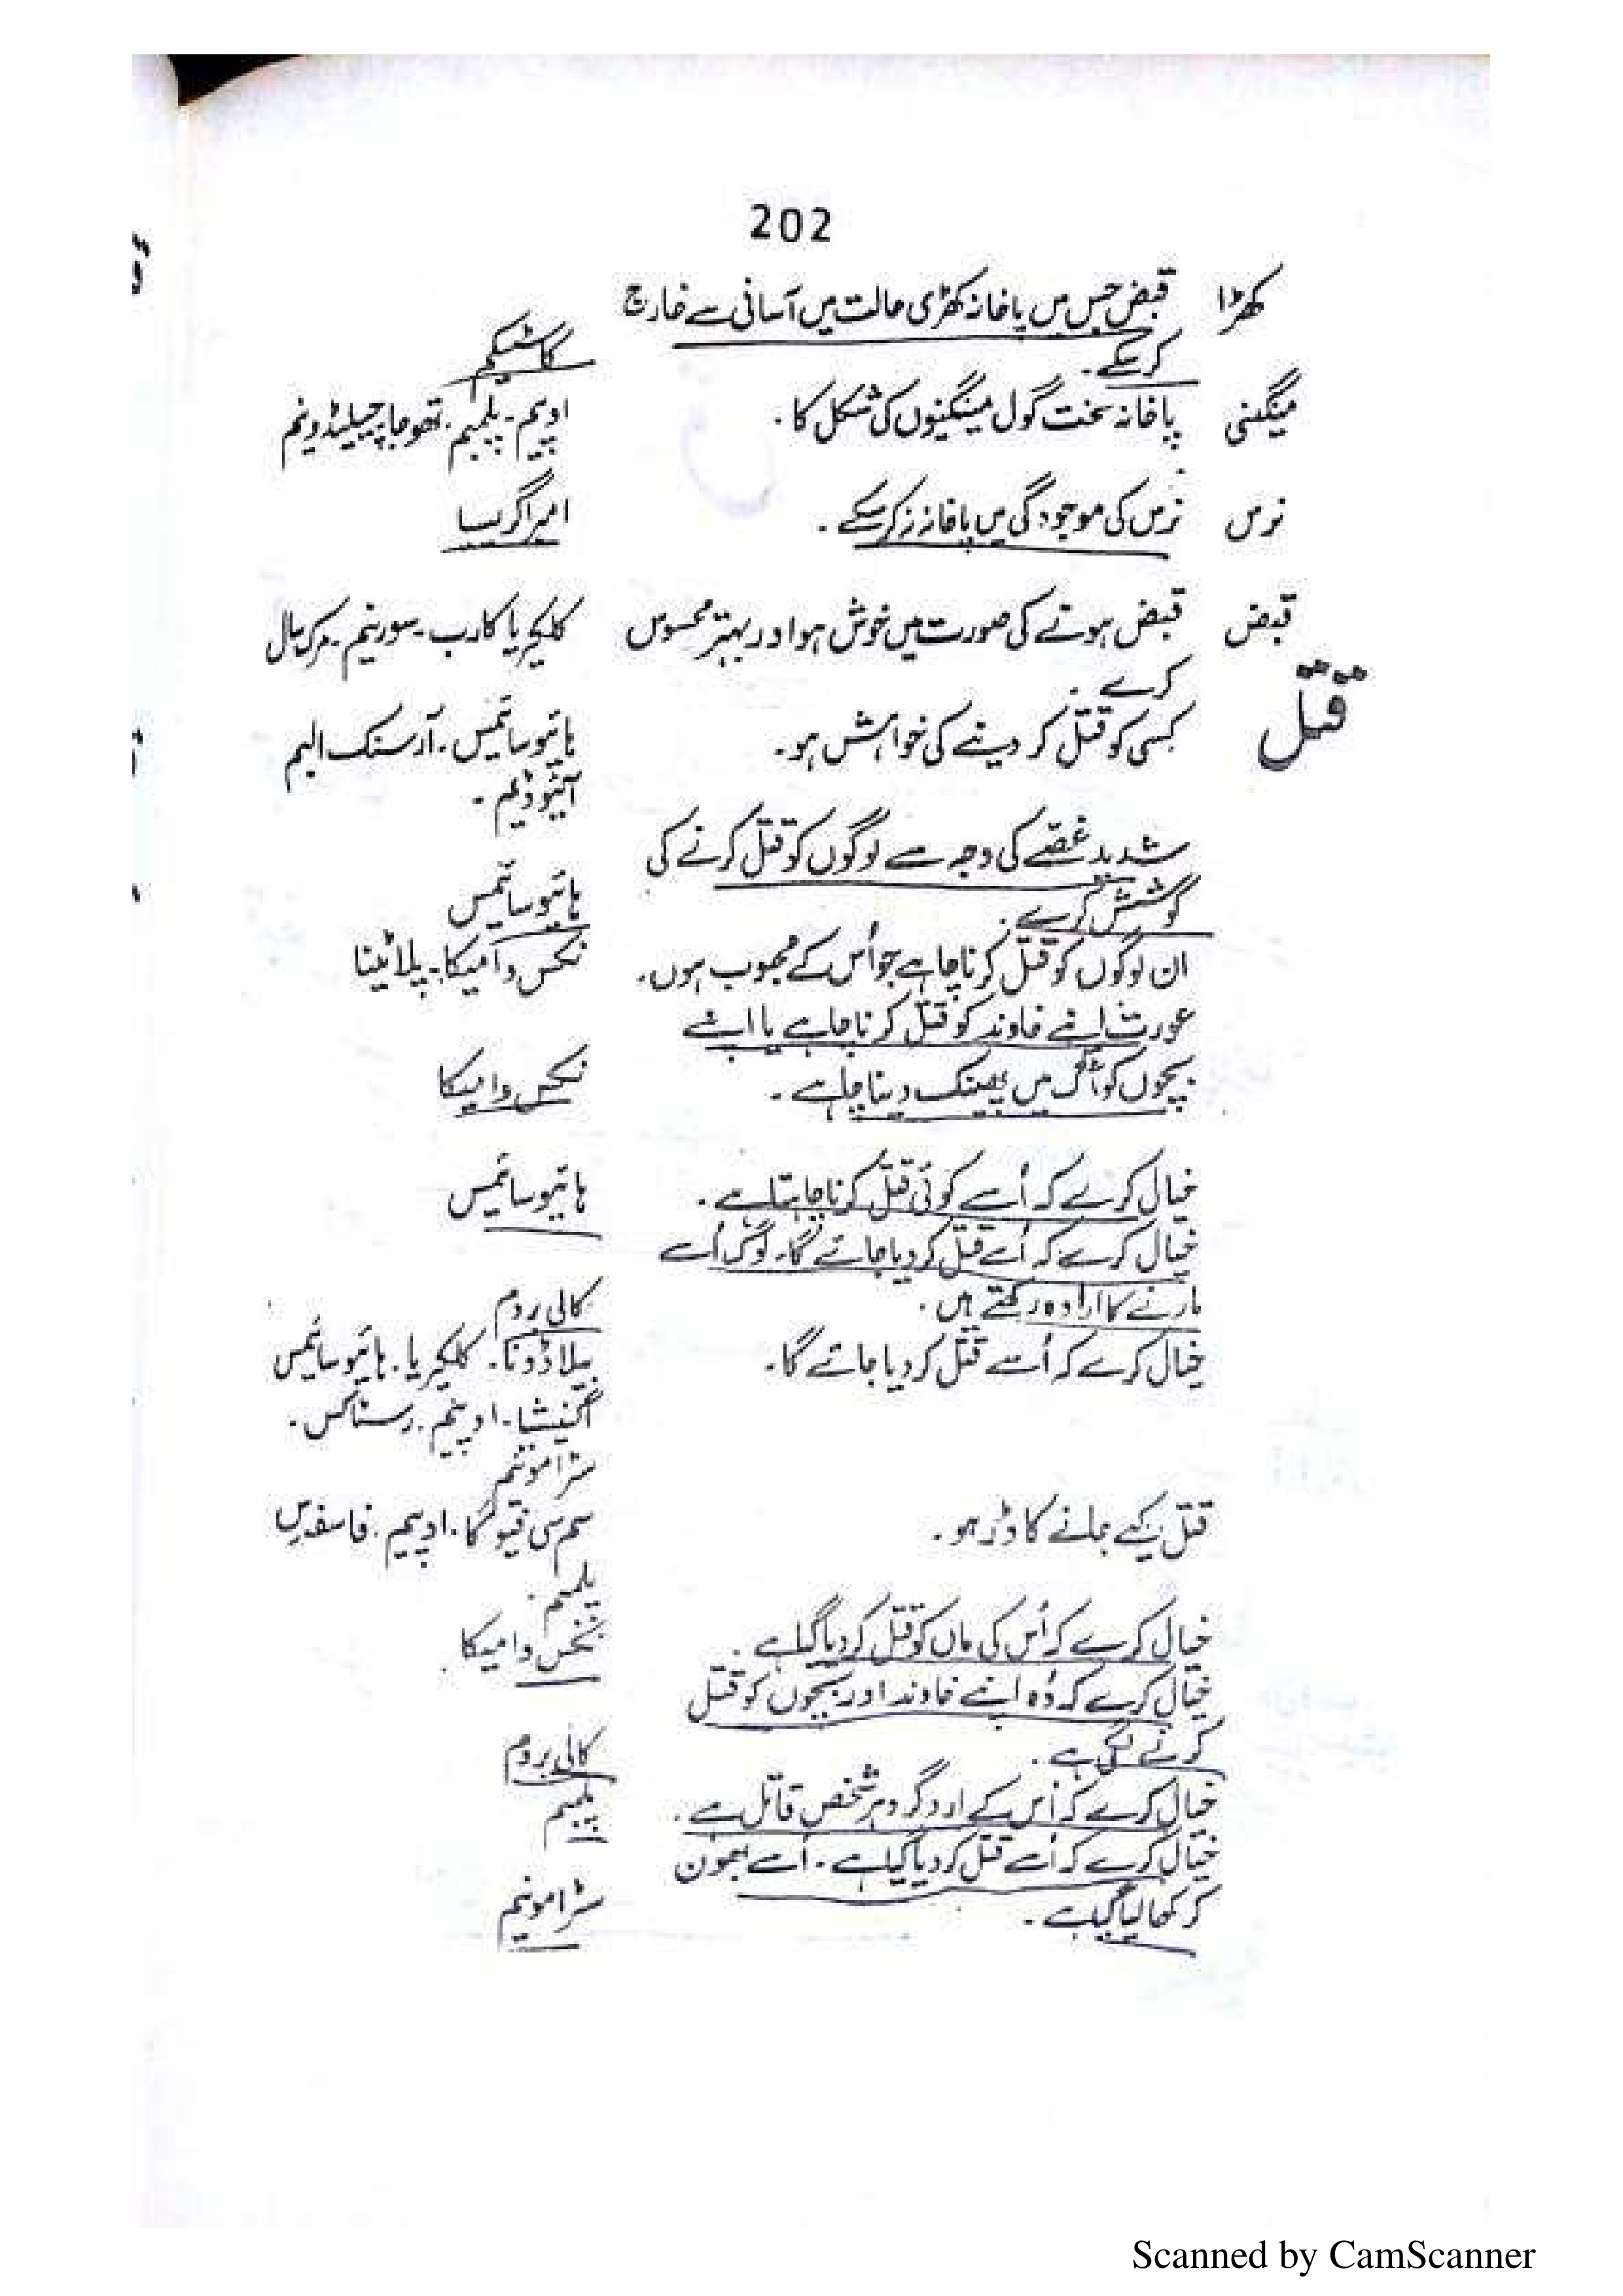 202
کھڑا قبض جس میں پاخانہ کھڑی حالت میں آسانی سے خارج
کرسکے۔ کاسٹیکم
مینگنی پاخانہ سخت گول مینگنیوں کی شکل کا۔ اوپیم۔ پلمبم۔ تھوجا۔ چیلیڈونیم
نرس نرس کی موجودگی میں پاخانہ نہ کرسکے۔ امبراگریسیا
قبض قبض ہونے کی صورت میں خوش ہو اور بہتر محسوس کلکیریا کارب۔ سورینم۔ مرک سال
کرے۔
قتل کسی کو قتل کر دینے کی خواہش ہو۔ ہائیوسائمس۔ آرسنک البم
آئیوڈیم۔
شدید غصے کی وجہ سے لوگوں کو قتل کرنے کی
کوشش کرے۔ ہائیوسائمس
ان لوگوں کو قتل کرنا چاہے جو اُس کے محبوب ہوں۔ نکس وامیکا۔ پلاٹینا
عورت اپنے خاوند کو قتل کرنا چاہے یا اپنے
بچوں کو آگ میں پھینک دینا چاہے۔ نکس وامیکا
خیال کرے کہ اُسے کوئی قتل کرنا چاہتا ہے۔ ہائیوسائمس
خیال کرے کہ اُسے قتل کر دیا جائے گا۔ لوگ اُسے
مارنے کا ارادہ رکھتے ہیں۔ کالی بروم
خیال کرے کہ اُسے قتل کر دیا جائے گا۔ بیلاڈونا۔ کلکیریا۔ ہائیوسائمس
اگنیشا۔ اوپیم۔ رسٹاکس۔
سٹرامونیم
قتل کیے جانے کا ڈر ہو۔ سمسی فیوگا۔ اوپیم۔ فاسفورس
پلمبم۔
خیال کرے کہ اُس کی ماں کو قتل کر دیا گیا ہے۔ نکس وامیکا
خیال کرے کہ وُہ اپنے خاوند اور بچوں کو قتل
کرنے لگی ہے۔ کالی بروم
خیال کرے کہ اُس کے اردگرد ہر شخص قاتل ہے۔ پلمبم
خیال کرے کہ اُسے قتل کر دیا گیا ہے۔ اُسے بھون
کر کھا لیا گیا ہے۔ سٹرامونیم
Scanned by CamScanner